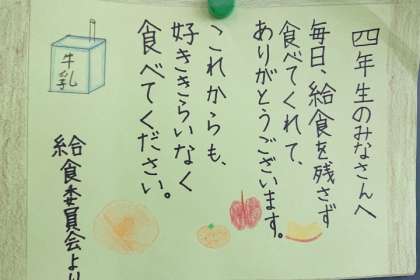 四年生のみなさんへ
毎日、給食を残さず
食べてくれて、
ありがとうございます。
これからも、
好ききらいなく
食べてください。
給食委員会より
牛乳